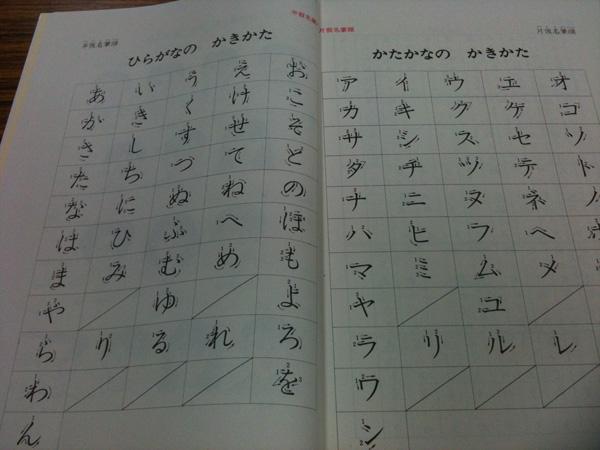 平假名筆順
ひらがなの かきかた
あ い う え お
か き く け こ
さ し す せ そ
た ち つ て と
な に ぬ ね の
は ひ ふ へ ほ
ま み む め も
や ゆ よ
ら り る れ ろ
わ を
ん
片假名筆順
片假名筆順
かたかなの かきかた
ア イ ウ エ オ
カ キ ク ケ コ
サ シ ス セ ソ
タ チ ツ テ ト
ナ ニ ヌ ネ ノ
ハ ヒ フ ヘ
マ ミ ム メ
ヤ ユ
ラ リ ル レ
ワ
ン